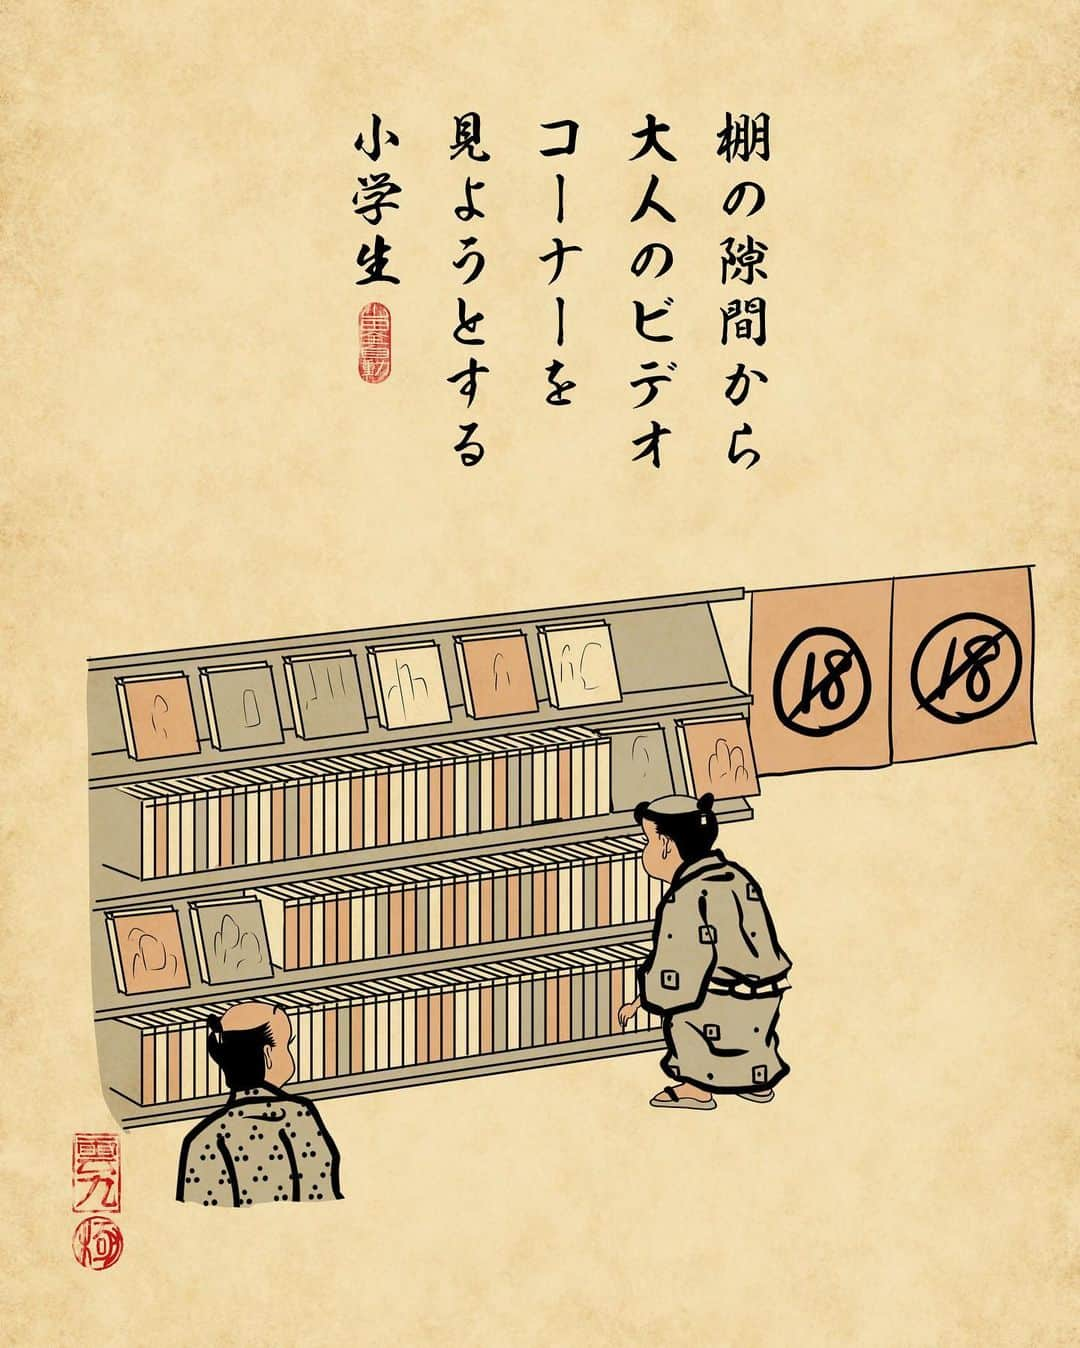 棚の隙間から
大人のビデオ
コーナーを
見ようとする
小学生
18
18